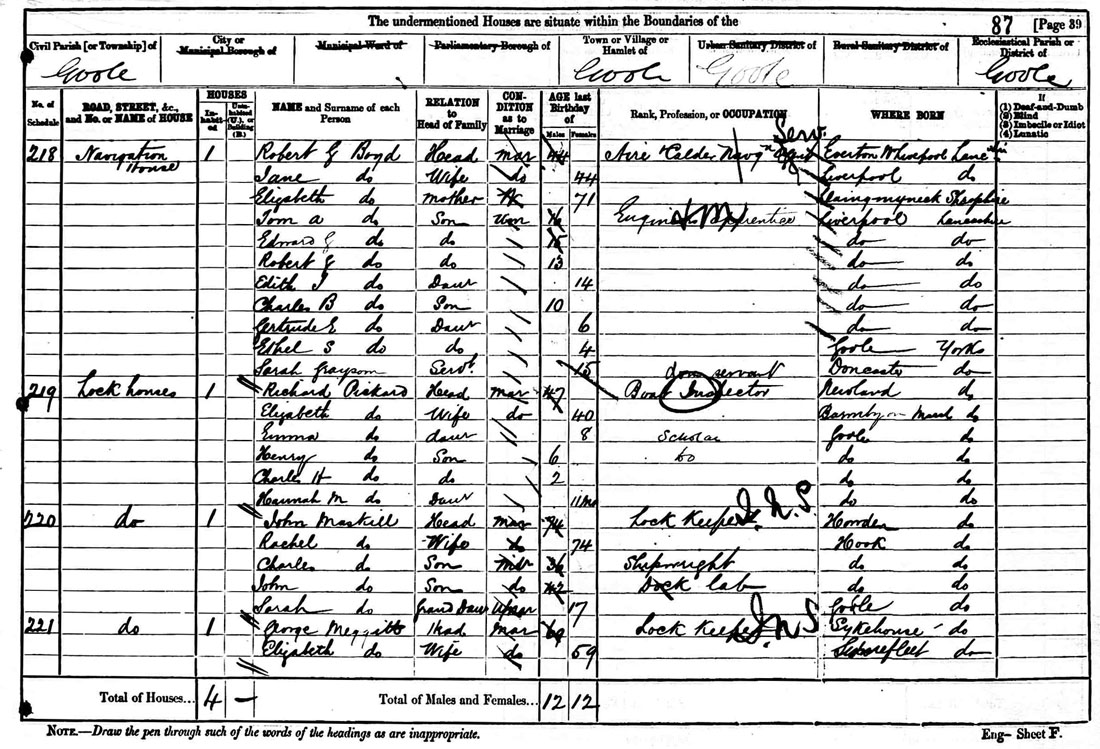 The undermentioned Houses are situate within the Boundaries of the 87 [Page 39
Civil Parish [or Township] of City or Municipal Borough of Municipal Ward of Parliamentary Borough of Town or Village or Hamlet of Urban Sanitary District of Rural Sanitary District of Ecclesiastical Parish or District of
Goole Goole Goole Goole
No. of Schedule ROAD, STREET, &c., and No. or NAME of HOUSE HOUSES Inhabited Uninhabited (U.), or Building (B.) NAME and Surname of each Person RELATION to Head of Family CONDITION as to Marriage AGE last Birthday of Males Females Rank, Profession, or OCCUPATION WHERE BORN If (1) Deaf-and-Dumb (2) Blind (3) Imbecile or Idiot (4) Lunatic
218 Navigation House 1 Robert G Boyd Head Mar 44 Aire & Calder Navgn Serv Everton Lanc
Jane do Wife do 44 Liverpool do
Elizabeth do Mother W 71
Tom A do Son Unm 16 Engineers Apprentice Liverpool Lancashire
Edward G do do 15 do do
Robert G do do 13 do do
Edith J do Daur 14 do do
Charles B do Son 10 do do
Gertrude E do Daur 6 do do
Ethel S do do 4 Goole Yorks
Sarah Grayson Servt 15 dom servant Doncaster do
219 Lock houses 1 Richard Pickard Head Mar 47 Boat Inspector Newland do
Elizabeth do Wife do 40 Barmby on Marsh do
Emma do daur 8 Scholar Goole do
Henry do Son 6 do do do
Charles H do do 2 do do
Hannah M do Daur 11 Mo do do
220 do 1 John Maskill Head Mar 74 Lock Keeper I.N.S. Howden do
Rachel do Wife do 74 Hook do
Charles do Son 36 Shipwright do do
John do Son do 42 Dock lab do do
Sarah do Grand Daur Unmar 17 Goole do
221 do 1 George Meggitt Head Mar 69 Lock Keeper I N S Sykehouse do
Elizabeth do Wife do 59 do
Total of Houses... 4 — Total of Males and Females... 12 12
NOTE.—Draw the pen through such of the words of the headings as are inappropriate. Eng- Sheet F.